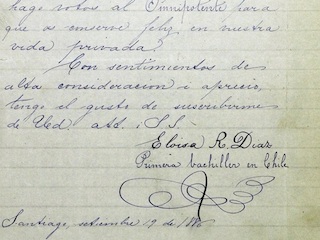 hago votos al Omnipotente para
que os conserve feliz en nuestra
vida privada?
Con sentimientos de
alta consideracion i aprecio,
tengo el gusto de suscribirme
de Ued. att. i S.S.
Eloisa R. Diaz
Primera bachiller en Chile
Santiago, setiembre 19 de